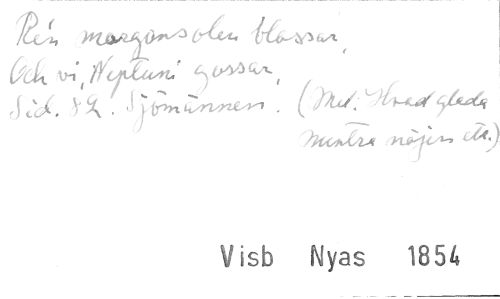 Re'n morgonsolen blossar,
Och vi, Neptuni gossar,
Sid. 82. Sjömännen. (Mel: Hvad glada
muntra nöjen etc.)
Visb Nyas 1854